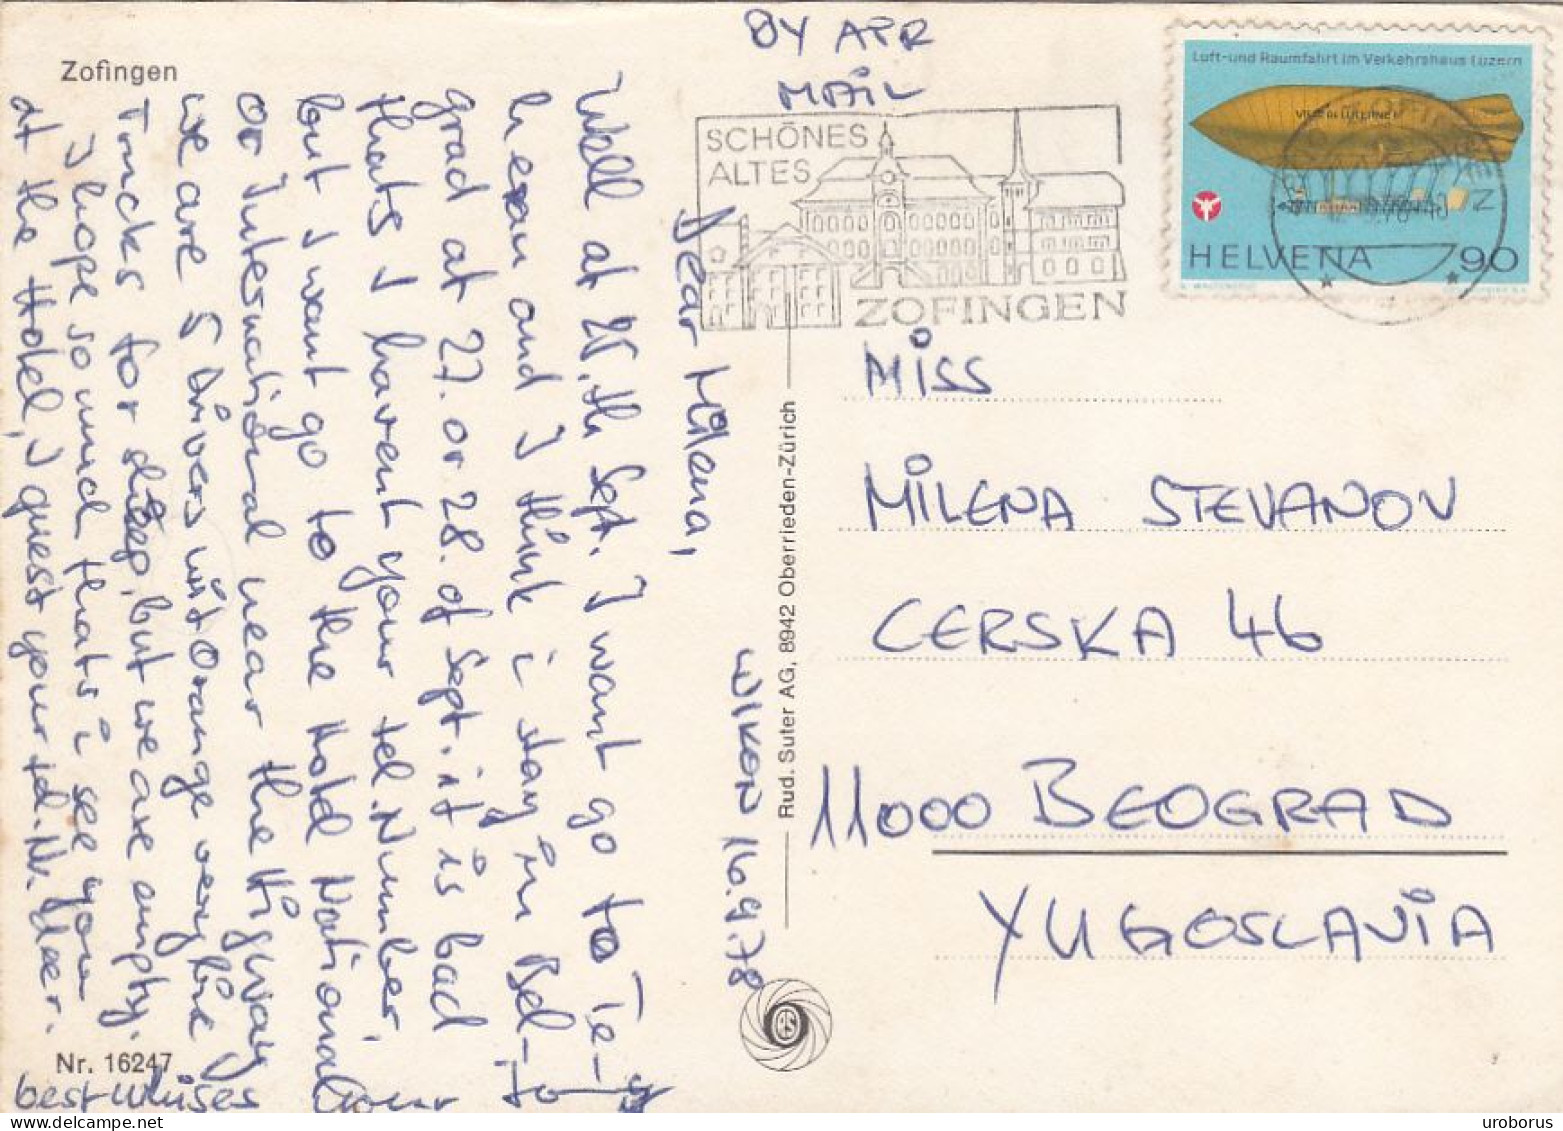 Zofingen
BY AIR
MAIL
SCHÖNES
ALTES
ZOFINGEN
Luft-und Raumfahrt im Verkehrshaus Luzern
VILLE DE LUCERNE
HELVETIA 90
Dear Milena,
WIKON 16.9.78
Well at 25.th Sept. I want go to Te-
heran and I think i stay in Bel-
grad at 27. or 28. of Sept. it is bad
thats I havent your tel. Number.
but I want go to the Hotel National
or International near the Higway
we are 5 Drivers wit Orange very fine
Trucks for sleep, but we are empty.
I hope so much thats i see you
at the Hotel, I guest your tel. Nr.
best Whises
MISS
MILENA STEVANOV
CERSKA 46
11000 BEOGRAD
YUGOSLAVIA
Rud. Suter AG, 8942 Oberrieden-Zürich
Nr. 16247
uroborus